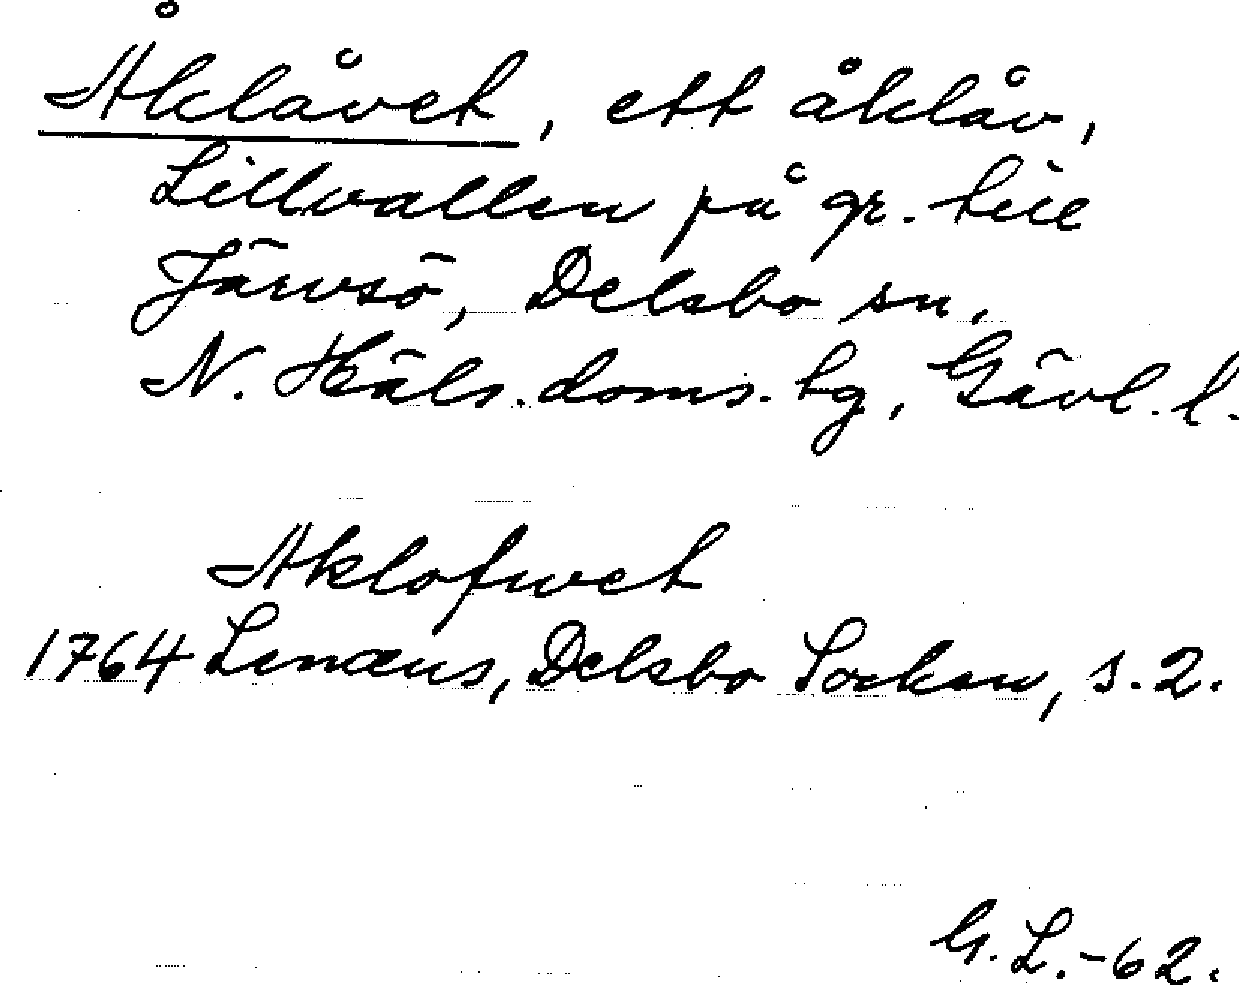 Åklåvet, ett åklåv,
Lillvallen på gr. till
Järvsö, Delsbo sn,
N. Häls. doms. tg, Gävl. l.
Aklofwet
1764 Lenæus, Delsbo Socken, s. 2.
G. L. -62.